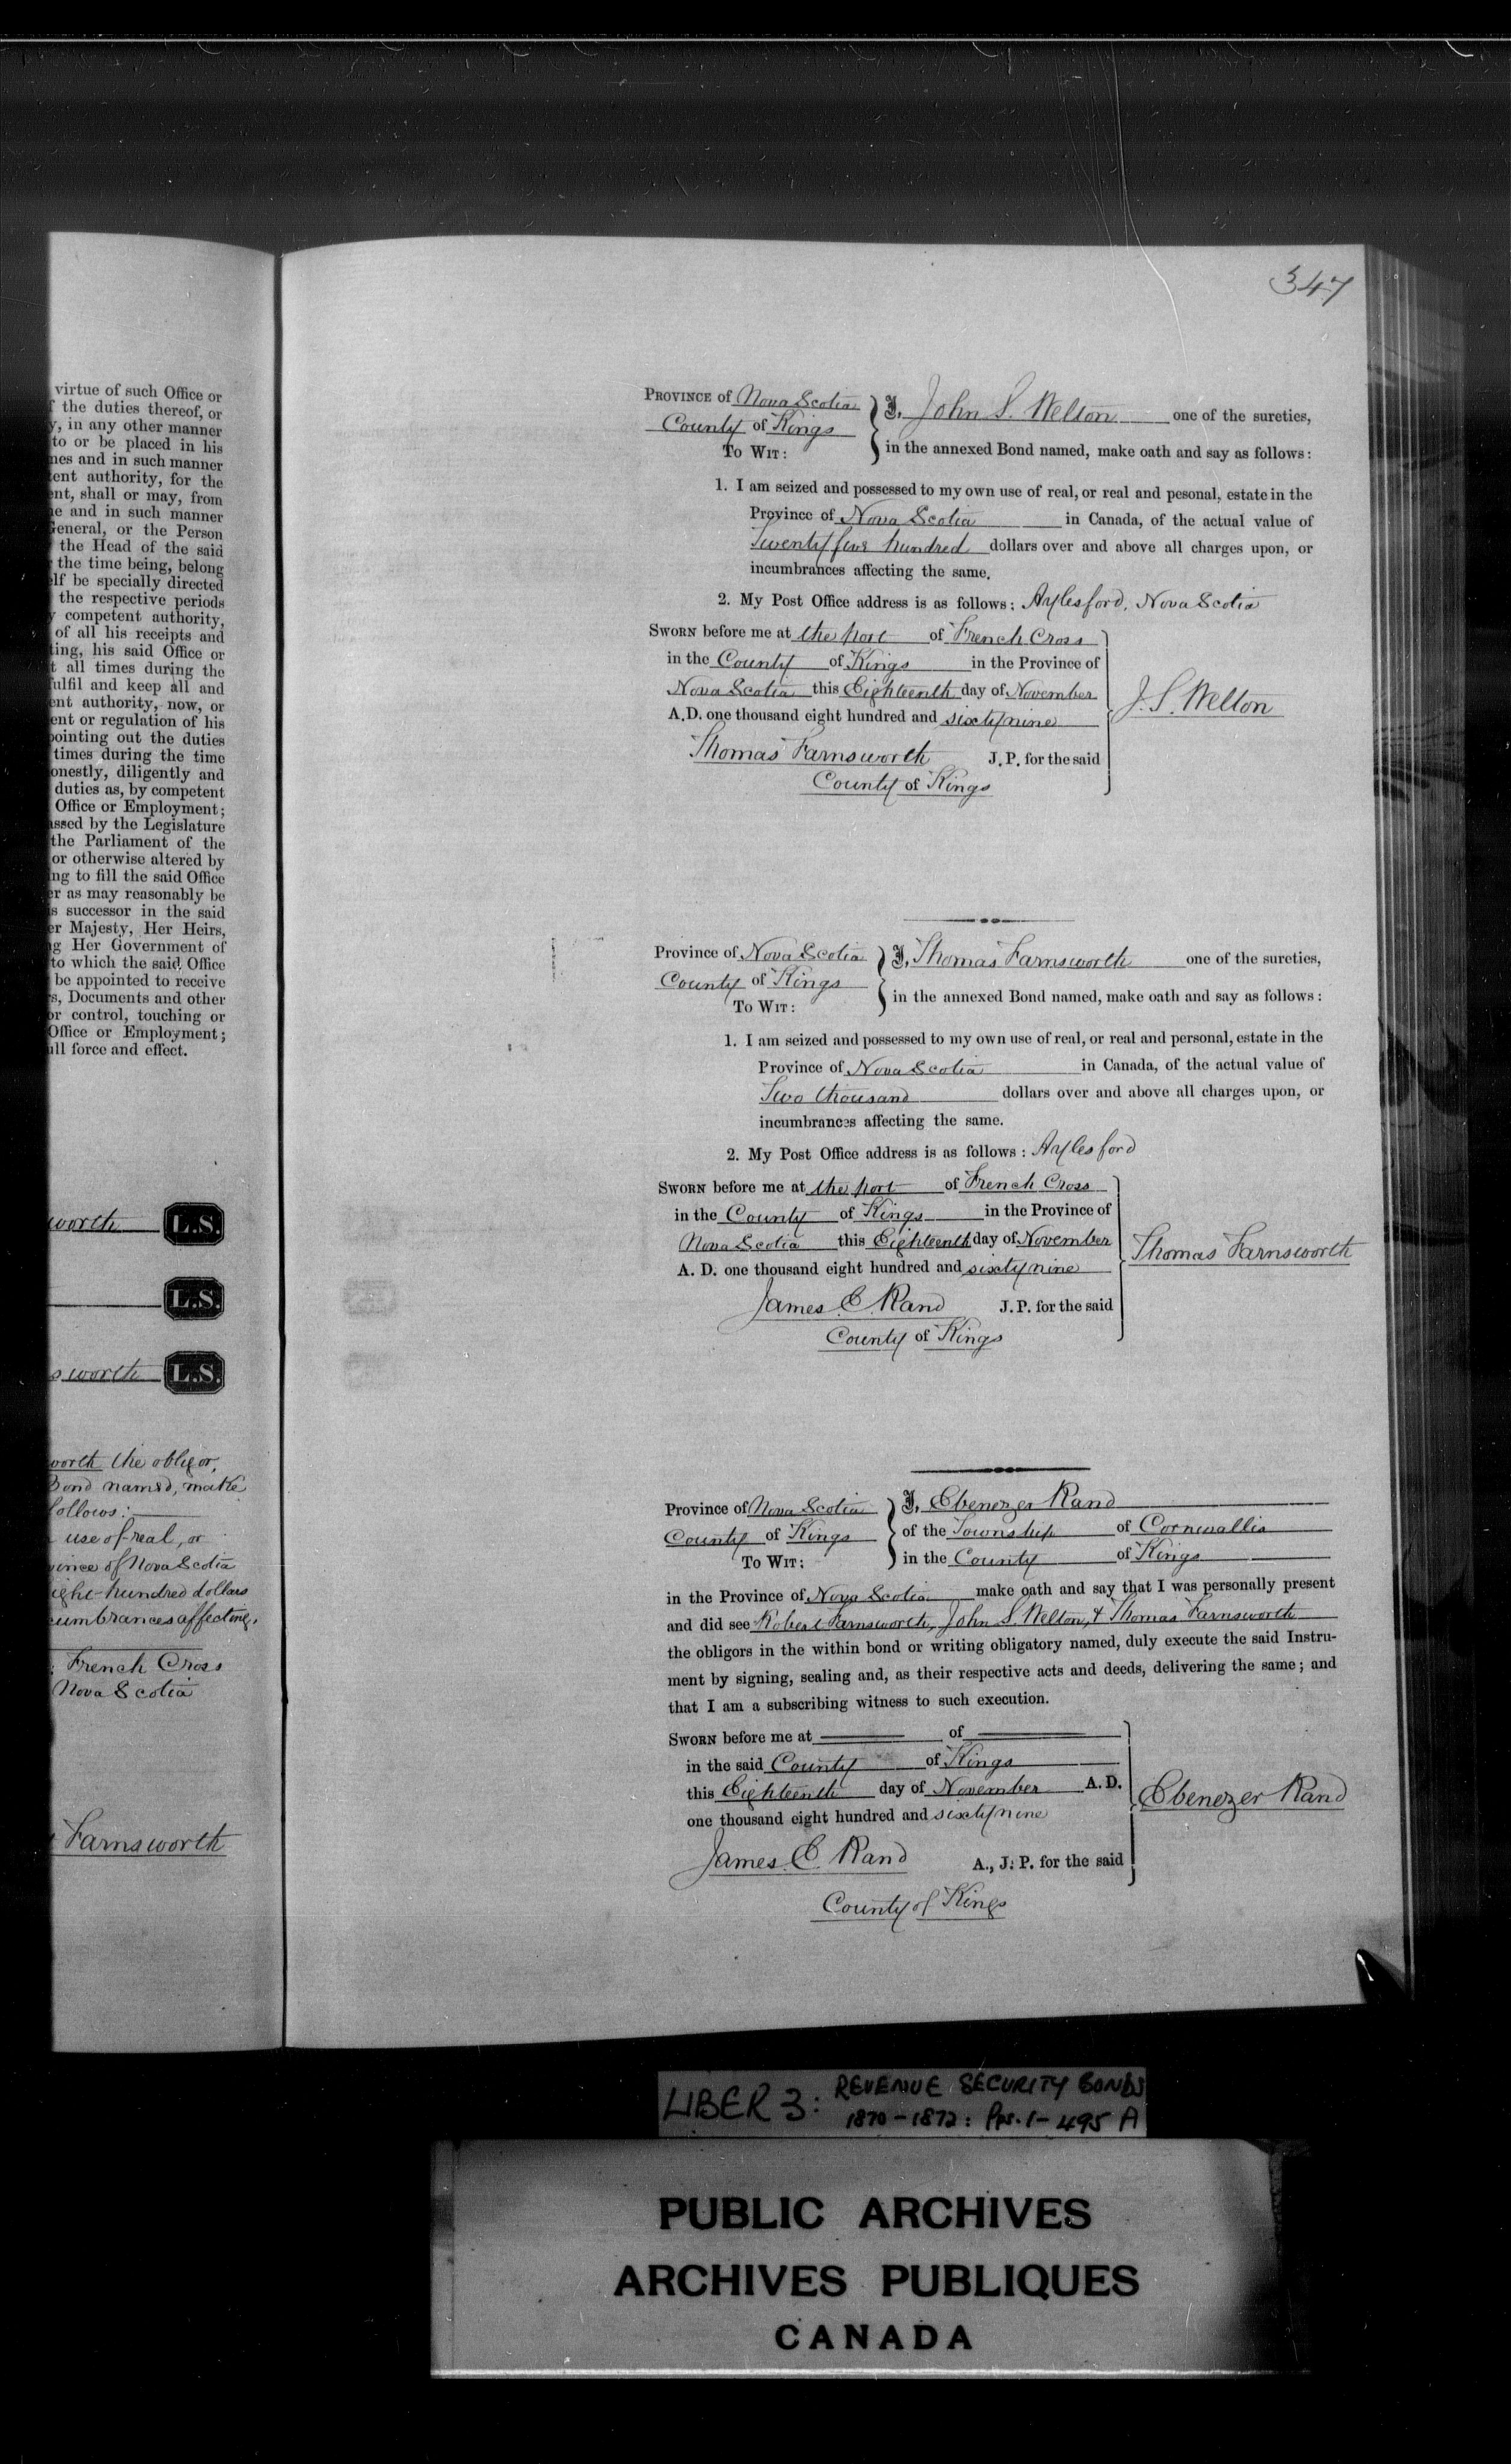 virtue of such Office or
the duties thereof, or
in any other manner
to or be placed in his
and in such manner
authority, for the
shall or may, from
and in such manner
General, or the Person
the Head of the said
the time being, belong
be specially directed
the respective periods
competent authority,
of all his receipts and
his said Office or
all times during the
fulfil and keep all and
authority, now, or
or regulation of his
pointing out the duties
times during the time
honestly, diligently and
duties as, by competent
Office or Employment;
by the Legislature
the Parliament of the
or otherwise altered by
to fill the said Office
as may reasonably be
successor in the said
Majesty, Her Heirs,
Her Government of
to which the said Office
be appointed to receive
Documents and other
control, touching or
Office or Employment;
force and effect.
worth L.S.
L.S.
sworth L.S.
worth the obligor,
Bond named, make
follows:
use of real, or
vince of Nova Scotia
eight hundred dollars
cumbrances affecting,
: French Cross
Nova Scotia
Farnsworth
347
PROVINCE of Nova Scotia
County of Kings
TO WIT:
I, John S. Welton one of the sureties,
in the annexed Bond named, make oath and say as follows:
1. I am seized and possessed to my own use of real, or real and pesonal, estate in the
Province of Nova Scotia in Canada, of the actual value of
Twenty five hundred dollars over and above all charges upon, or
incumbrances affecting the same.
2. My Post Office address is as follows: Aylesford, Nova Scotia
SWORN before me at the port of French Cross
in the County of Kings in the Province of
Nova Scotia this Eighteenth day of November
A.D. one thousand eight hundred and sixty nine
J. S. Welton
Thomas Farnsworth J.P. for the said
County of Kings
Province of Nova Scotia
County of Kings
TO WIT:
I, Thomas Farnsworth one of the sureties,
in the annexed Bond named, make oath and say as follows:
1. I am seized and possessed to my own use of real, or real and personal, estate in the
Province of Nova Scotia in Canada, of the actual value of
Two thousand dollars over and above all charges upon, or
incumbrances affecting the same.
2. My Post Office address is as follows: Aylesford
SWORN before me at the port of French Cross
in the County of Kings in the Province of
Nova Scotia this Eighteenth day of November
A. D. one thousand eight hundred and sixty nine
Thomas Farnsworth
James E. Rand J. P. for the said
County of Kings
Province of Nova Scotia
County of Kings
TO WIT:
I, Ebenezer Rand
of the Township of Cornwallis
in the County of Kings
in the Province of Nova Scotia make oath and say that I was personally present
and did see Robert Farnsworth, John S. Welton, & Thomas Farnsworth
the obligors in the within bond or writing obligatory named, duly execute the said Instru-
ment by signing, sealing and, as their respective acts and deeds, delivering the same; and
that I am a subscribing witness to such execution.
SWORN before me at of
in the said County of Kings
this Eighteenth day of November A.D.
one thousand eight hundred and sixty nine
Ebenezer Rand
James E. Rand A., J. P. for the said
County of Kings
LIBER 3: REVENUE SECURITY BONDS
1870-1872: PPS. 1-495 A
PUBLIC ARCHIVES
ARCHIVES PUBLIQUES
CANADA